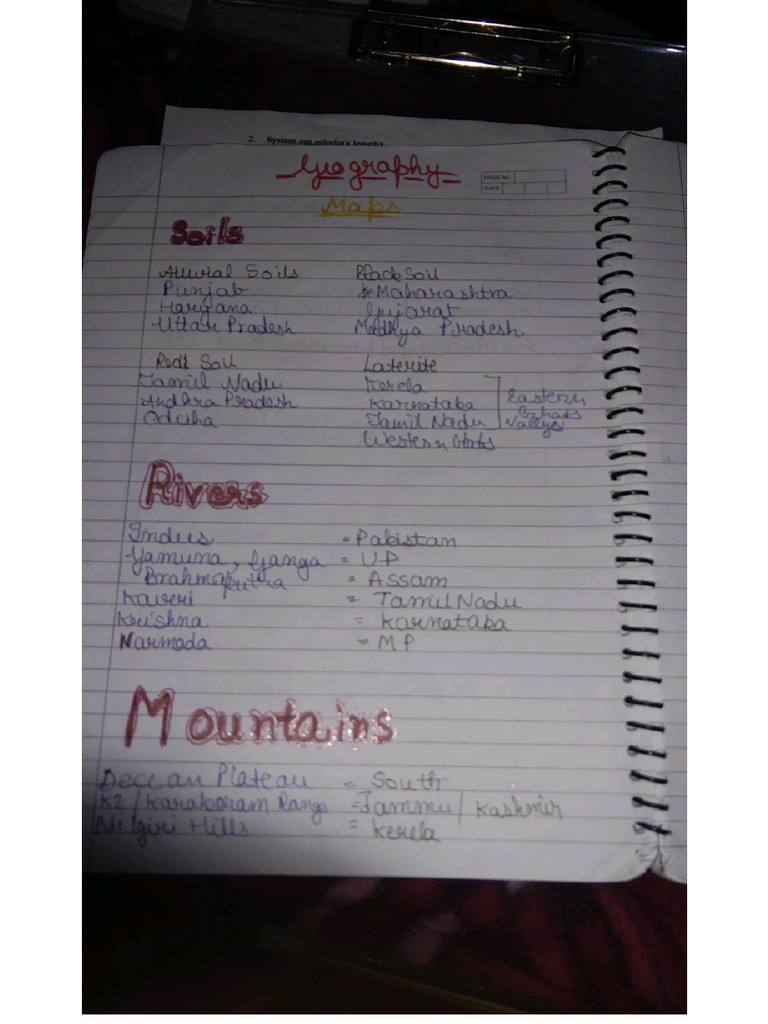 2. System.out.println(s.length);
Geography
PAGE No.
DATE
Maps
Soils
Alluvial Soils Black Soil
Punjab Maharashtra
Haryana Gujarat
Uttar Pradesh Madhya Pradesh
Red Soil Laterite
Tamil Nadu Kerela
Andhra Pradesh Karnataka
Odisha Tamil Nadu
Western Ghats
Eastern
Ghats
Valleys
Rivers
Indus = Pakistan
Yamuna, Ganga = UP
Brahmaputra = Assam
Kaveri = Tamil Nadu
Krishna = Karnataka
Narmada = MP
Mountains
Deccan Plateau = South
K2 / Karakoram Range = Jammu / Kashmir
Nilgiri Hills = Kerela